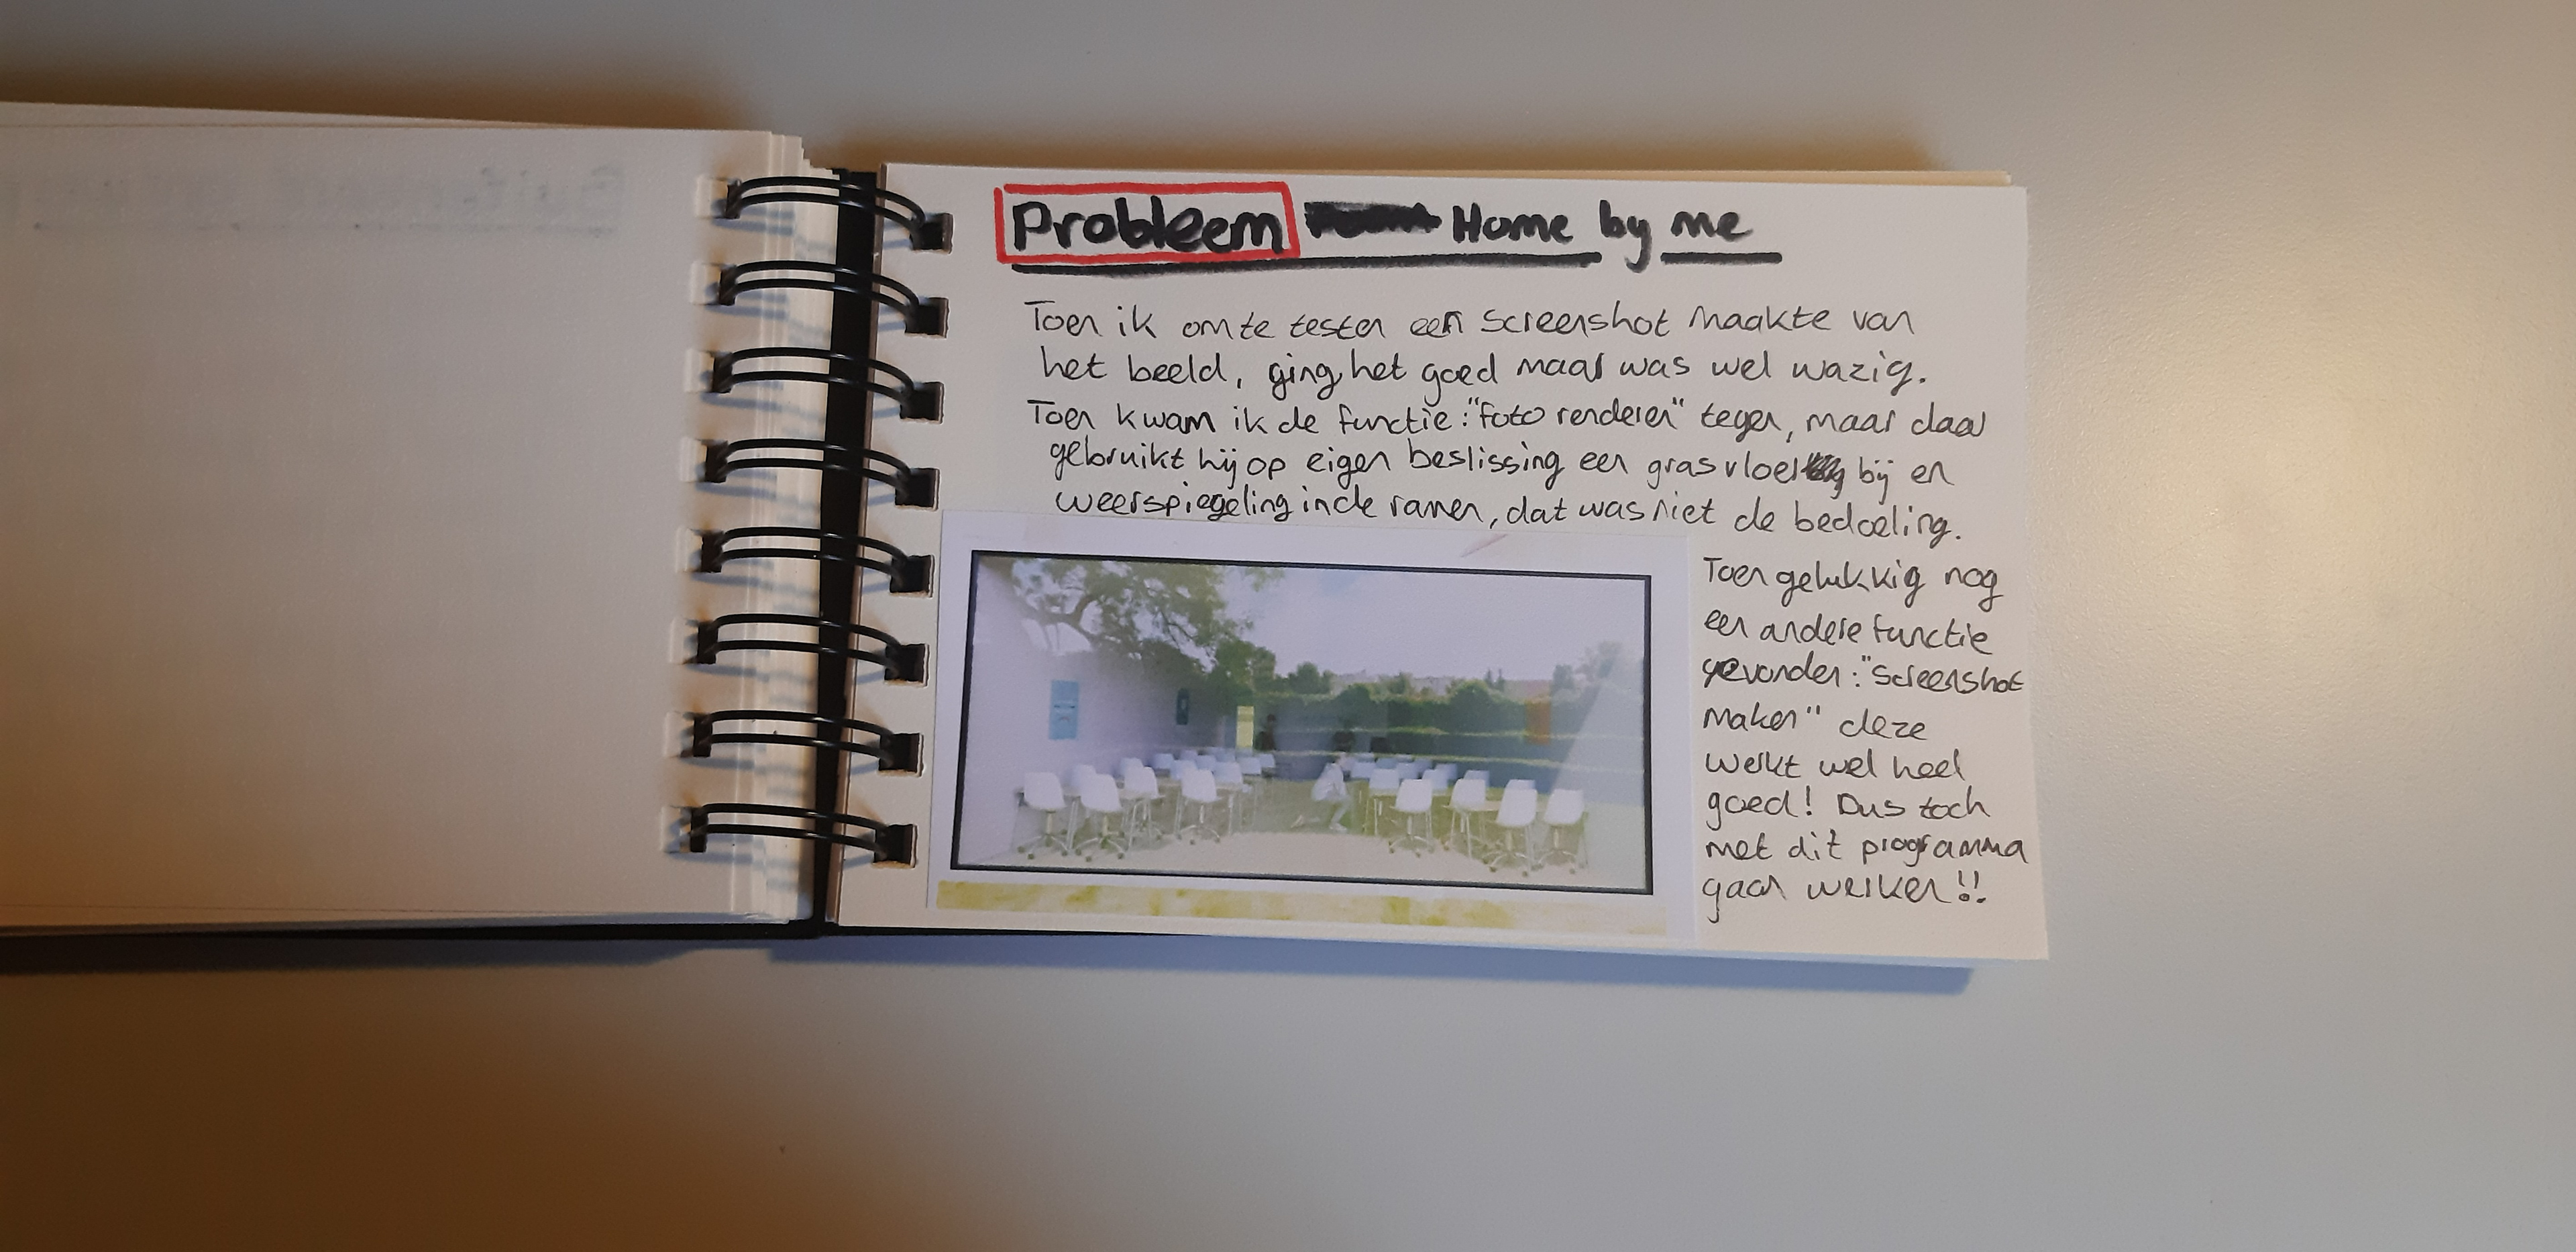 Probleem Home by me
Toen ik om te testen een screenshot maakte van
het beeld, ging het goed maar was wel wazig.
Toen kwam ik de functie: "foto renderen" tegen, maar daar
gebruikt hij op eigen beslissing een grasvloer bij en
weerspiegeling in de ramen, dat was niet de bedoeling.
Toen gelukkig nog
een andere functie
gevonden: "screenshot
maken" deze
werkt wel heel
goed! Dus toch
met dit programma
gaan werken!!